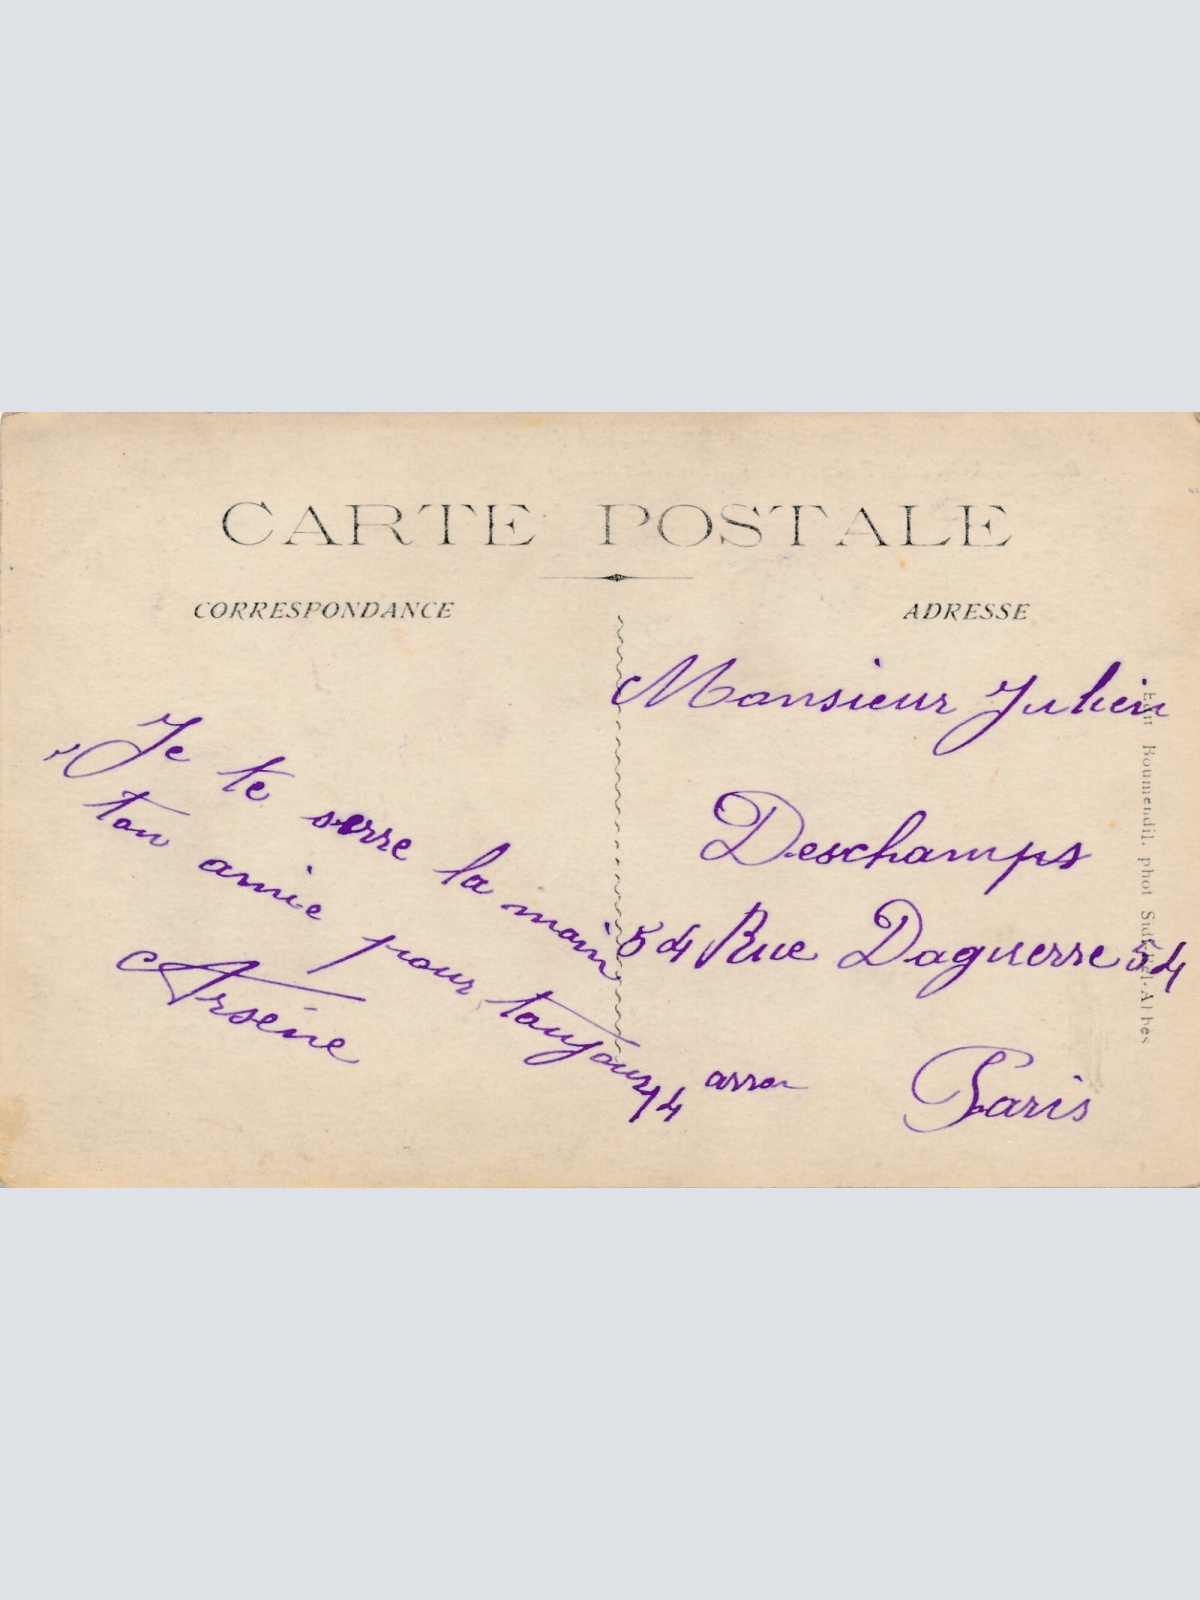 CARTE POSTALE
CORRESPONDANCE
ADRESSE
Je te serre la main
ton amie pour toujours
Arsène
Monsieur Julien
Deschamps
54 Rue Daguerre 54
14 arron Paris
Edit Boumendil, phot Sidi-bel-Abbès